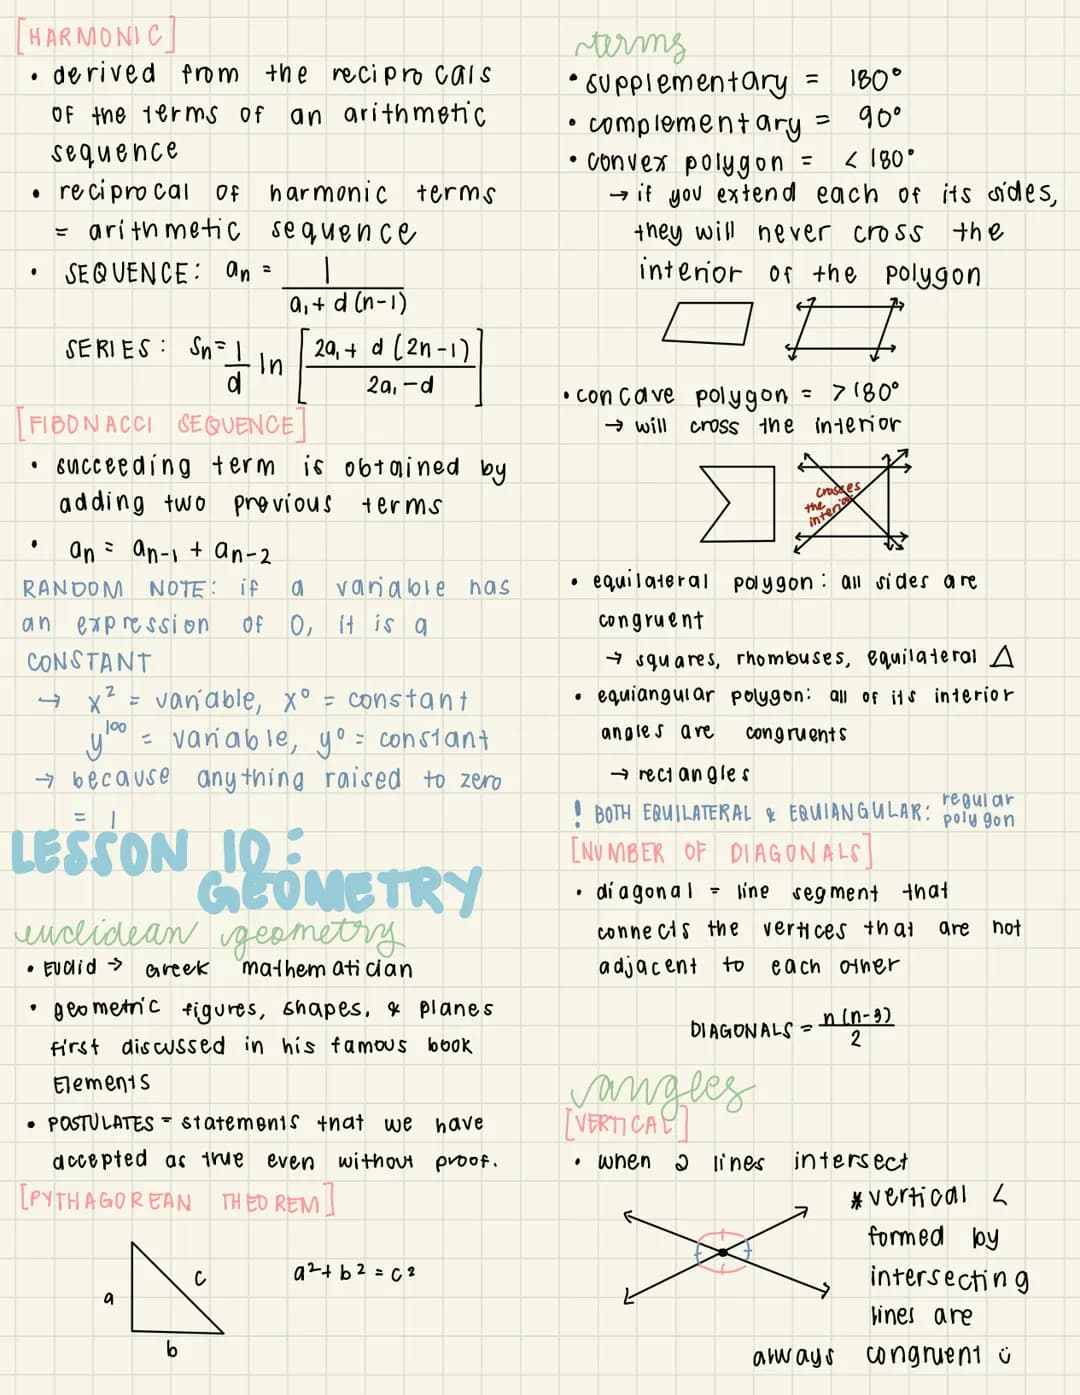 [HARMONIC]
• derived from the reciprocals
of the terms of an arithmetic
sequence
• reciprocal of harmonic terms
= arithmetic sequence
• SEQUENCE: an = 1 / a₁ + d (n-1)
SERIES: Sn = 1/d ln [2a₁ + d (2n-1) / 2a₁ - d]
[FIBONACCI SEQUENCE]
• succeeding term is obtained by
adding two previous terms
• an = an-1 + an-2
RANDOM NOTE: if a variable has
an expression of 0, it is a
CONSTANT
→ x² = variable, x⁰ = constant
y¹⁰⁰ = variable, y⁰ = constant
→ because anything raised to zero
= 1
LESSON 10:
GEOMETRY
euclidean geometry
• Euclid → Greek mathematician
• geometric figures, shapes, & planes
first discussed in his famous book
Elements
• POSTULATES = statements that we have
accepted as true even without proof.
[PYTHAGOREAN THEOREM]
a
c
b
a² + b² = c²
terms
• supplementary = 180°
• complementary = 90°
• convex polygon = < 180°
→ if you extend each of its sides,
they will never cross the
interior of the polygon
• concave polygon = > 180°
→ will cross the interior
crosses
the
interior
• equilateral polygon: all sides are
congruent
→ squares, rhombuses, equilateral △
• equiangular polygon: all of its interior
angles are congruents
→ rectangles
! BOTH EQUILATERAL & EQUIANGULAR: regular
polygon
[NUMBER OF DIAGONALS]
• diagonal = line segment that
connects the vertices that are not
adjacent to each other
DIAGONALS = n (n-3) / 2
angles
[VERTICAL]
• when 2 lines intersect
* vertical <
formed by
intersecting
lines are
always congruent ü